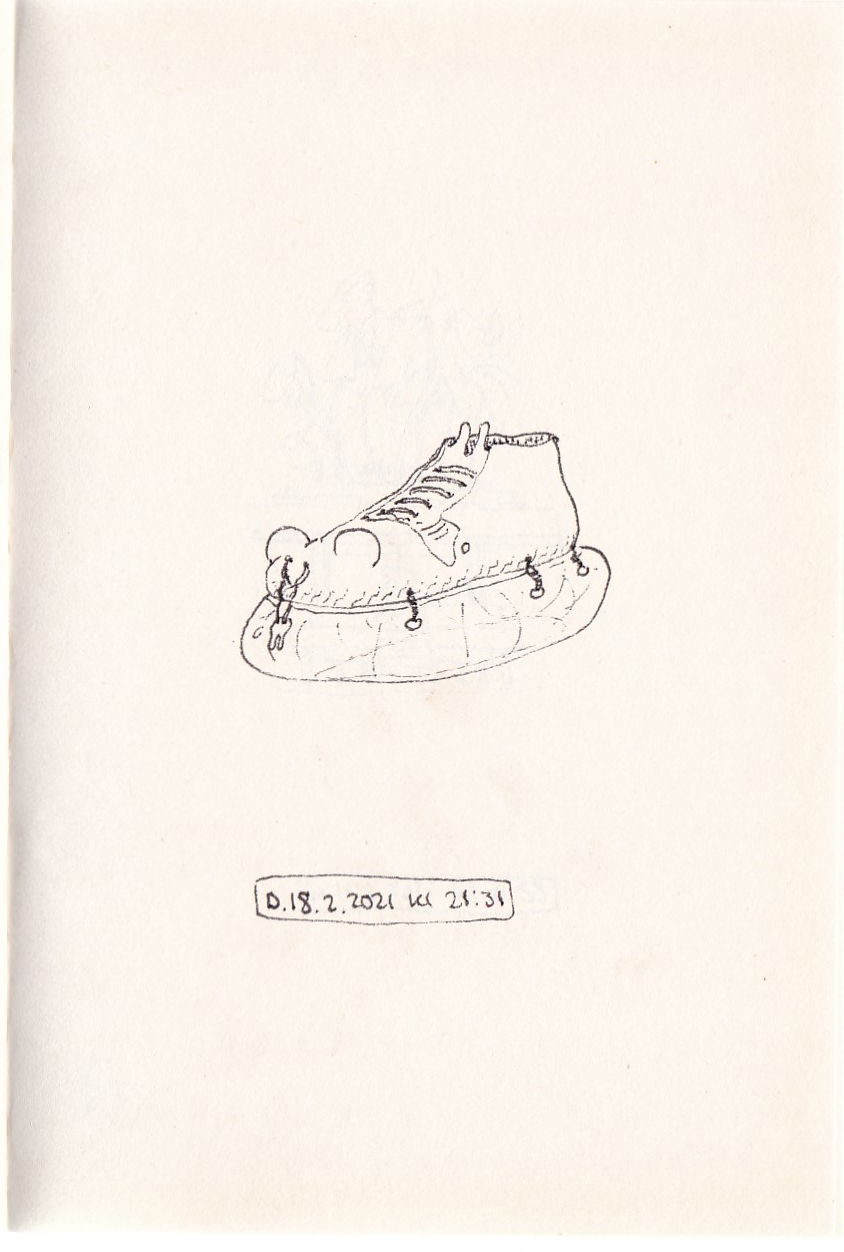 D.18.2.2021 kl 21:31